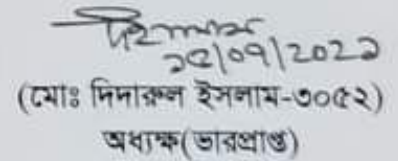 ১৫/০৭/২০২১
(মোঃ দিদারুল ইসলাম-৩০৫২)
অধ্যক্ষ(ভারপ্রাপ্ত)